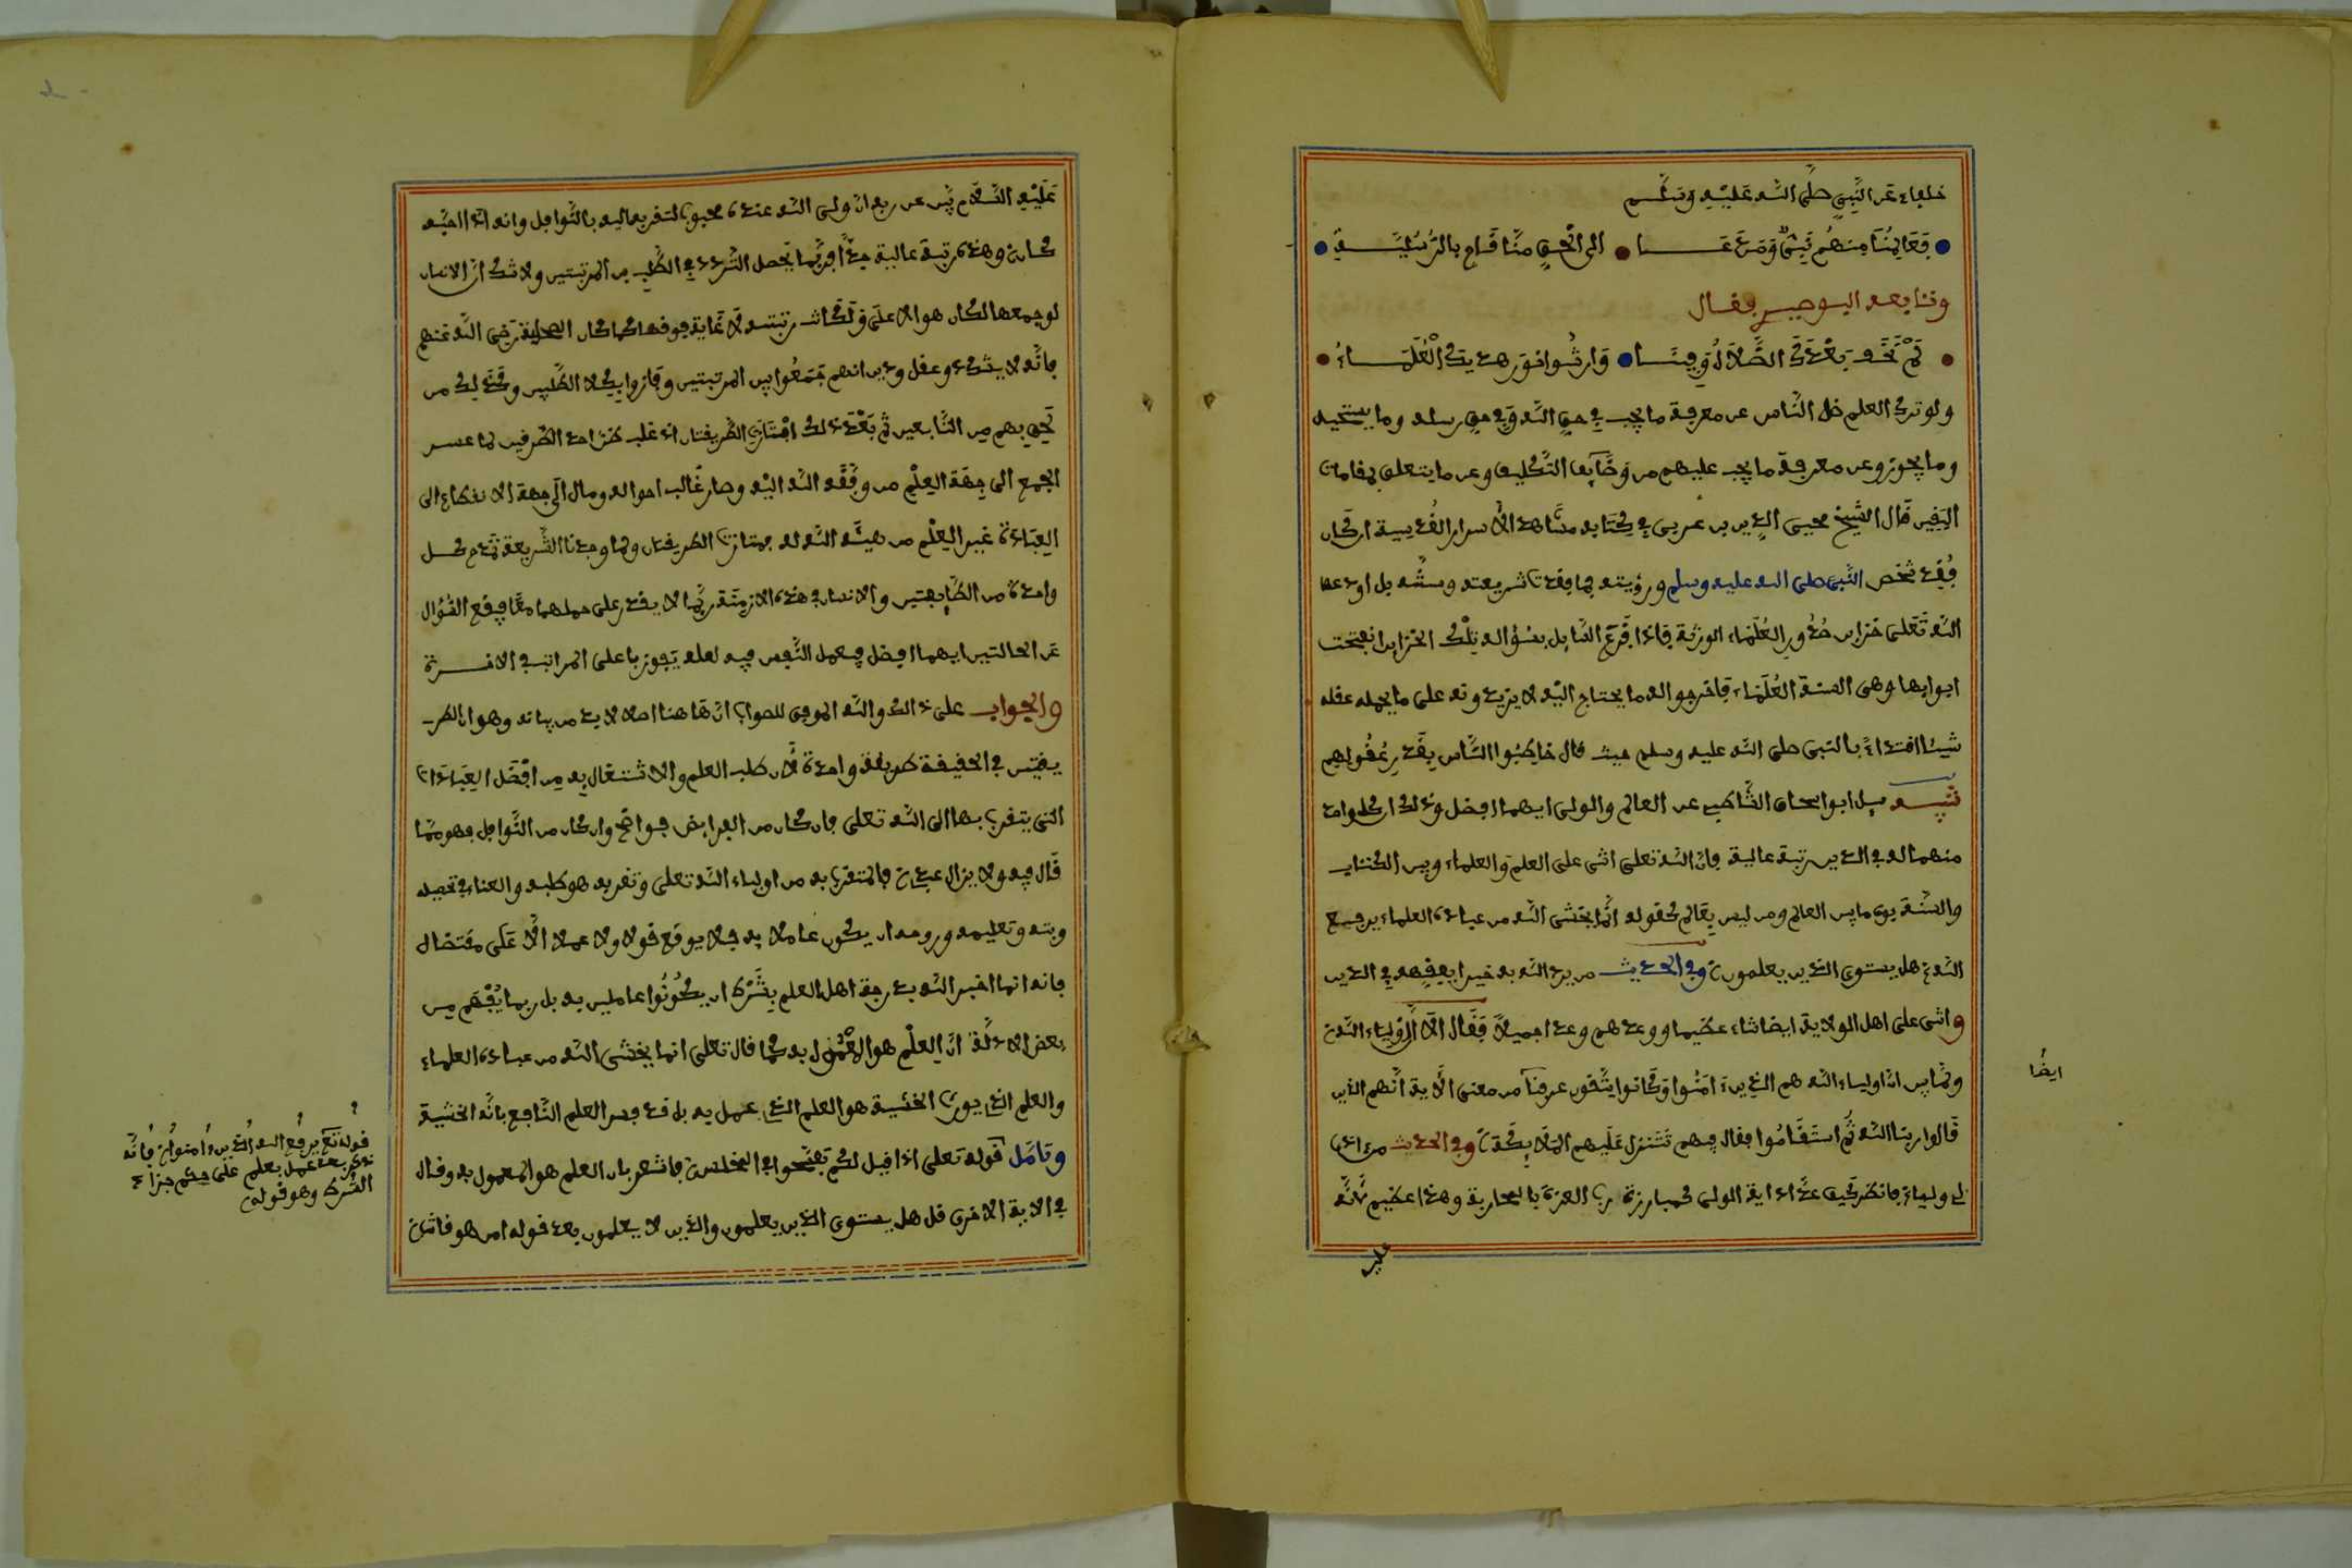 خلفاء عن النبي صلى الله عليه وسلم
فعالمنا منهم نبي ومن دعا الى الحق منا قام بالرسلية
وتابعه البوصيري فقال
لم نخف بعدك الضلال وفينا وارثوا نور هديك العلماء
ولو ترك العلم ضل الناس عن معرفة ما يجب في حق الله وفي حق رسله وما يستحيل
وما يجوز وعن معرفة ما يجب عليهم من وظايف التكليف وعن ما يتعلق بمقامات
اليقين قال الشيخ محيي الدين بن عربي في كتابه مشاهد الأسرار القدسية ان كان
فقد شخص النبي صلى الله عليه وسلم ورؤيته فما فقدت شريعته وسنته بل اودعها
الله تعلى خزاين صدور العلماء الورثة فاذا قرع السايل بسؤاله تلك الخزاين انفتحت
ابوابها وهي السنة العلماء فاخرجوا له ما يحتاج اليه لا يزيدونه على ما يحمله عقله
شيئا اقتداء بالنبي صلى الله عليه وسلم حيث قال خاطبوا الناس بقدر عقولهم
تنبيه سيل ابو اسحاق الشاطبي عن العالم والولي ايهما افضل وذلك ان كل واحد
منهما له في الدين رتبة عالية فان الله تعلى اثنى على العلم والعلماء وبين الكتاب
والسنة بون ما بين العالم ومن ليس بعالم كقوله انما يخشى الله من عباده العلماء يرفع
الله هل يستوي الذين يعلمون وفي الحديث من يرد الله به خيرا يفقهه في الدين
واثنى على اهل الولاية ايضا ثناء عظيما ووعدهم وعدا جميلا فقال الا ان اولياء الله
ولما بين ان اولياء الله هم الذين ءامنوا وكانوا يتقون عرفنا من معنى الاية انهم الذين
قالوا ربنا الله ثم استقاموا فقال فيهم تتنزل عليهم الملايكة وفي الحديث من اذى
لي وليا فانظر كيف عد اذاية الولي كمبارزة رب العزة بالمحاربة وهذا عظيم لانه
عليه
ايضا
عليه السلام بين عن ربه ان ولي الله عنده محبوب لتقربه اليه بالنوافل وانه اذا احبه
كان وهذه رتبة عالية جدا فربما يحصل التردد في الطلب بين المرتبتين ولا شك ان الانسان
لو جمعها لكان هو الاعلى ولكانت رتبته لا غاية فوقها كما كان الصحابة رضي الله عنهم
فانه لا يشك ذو عقل ودين انهم جمعوا بين المرتبتين وفازوا بكلا الطلبين وكذلك من
لحق بهم من التابعين ثم بعد ذلك امتازت الطريقتان اذ غلب كذا احد الطرفين لما عسر
الجمع الى جهة العلم من وفقه الله اليه وصار غالب احواله ومال الى جهة الانقطاع الى
العبادة غير العلم من هيئه الله له فامتازت الطريقتان ولما وجدنا الشريعة تمدح كل
واحدة من الطايفتين والانسان في هذه الازمنة ربما لا يقدر على حملهما معا فيقع السؤال
عن الحالتين ايهما افضل فيعمل النفس فيه لعله يفوز باعلى المراتب في الاخرة
والجواب على ذلك والله الموفق للصواب ان هاهنا اصلا لا بد من بيانه وهو ان الطر
يقتين في الحقيقة طريقة واحدة لان طلب العلم والاشتغال به من افضل العبادات
التي يتقرب بها الى الله تعلى فان كان من الفرايض فواضح وان كان من النوافل فهو مما
قال فيه ولا يزال عبدي فالمتقرب به من اولياء الله تعلى وتقربه هو طلبه والعناء في تحصيله
وبثه وتعليمه وروحه ان يكون عاملا به فلا يوقع قولا ولا عملا الا على مقتضاه
فانه انما اخبر الله بدرجة اهل العلم بشرط ان يكونوا عاملين به بل ربما يفهم من
بعض الادلة ان العلم هو المعمول به كما قال تعلى انما يخشى الله من عباده العلماء
والعلم الذي يورث الخشية هو العلم الذي عمل به بل قد فسر العلم النافع بانه الخشية
وتامل قوله تعلى اذا قيل لكم تفسحوا في المجلس فاشعر بان العلم هو المعمول به وقال
في الاية الاخرى قل هل يستوي الذين يعلمون والذين لا يعلمون بعد قوله امن هو قانت
قوله تع يرفع الله الذين ءامنوا فانه
ذكر بعد عمل بعلم على حكم جزاء
الشرط وهو قوله